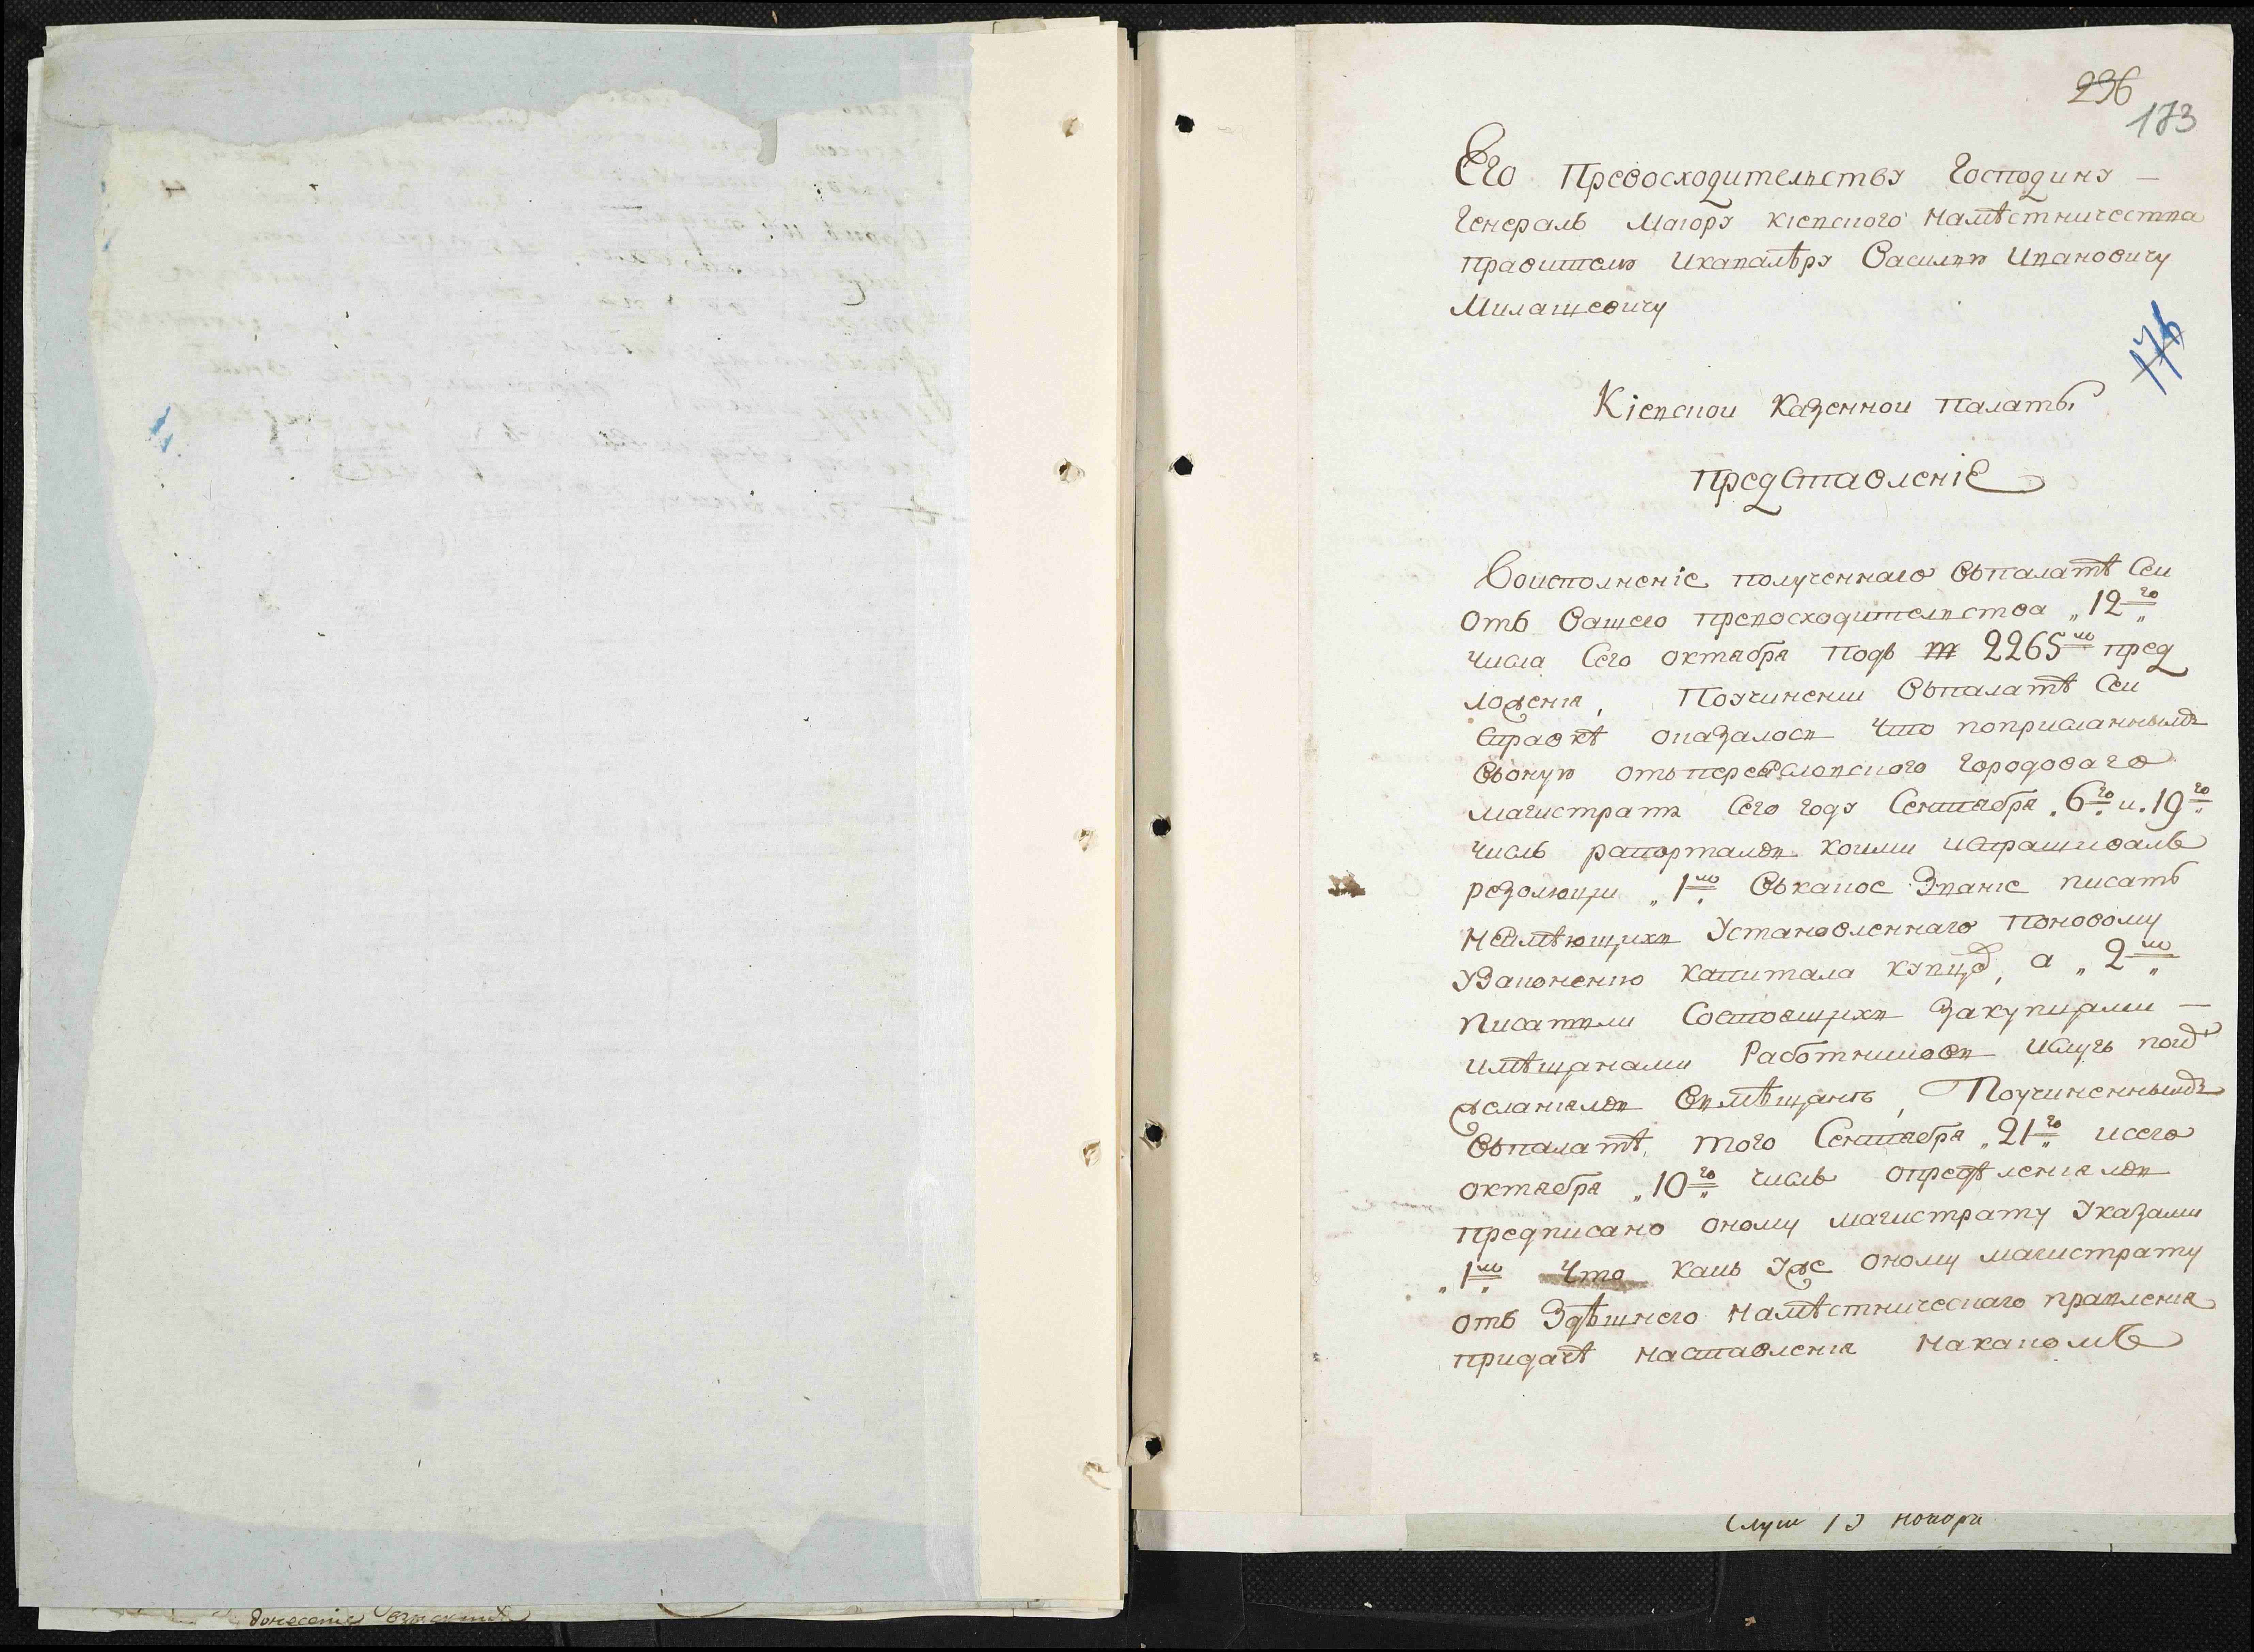 236
173
Его Превосходительству Господину —
Генералъ Маіору кіевского намѣстничества
правителю Икавалѣру Василию Ивановичу
Милашевичу
176
Кіевской Казенной палаты
представленіе
Воисполненіе полученнаго Въпалатѣ Сеи
отъ Вашего превосходительства „12го„
числа Сего октября подъ № 2265мъ пред
ложения, Поучинении Въпалатѣ Сеи
справкѣ оказалось что поприсланнымъ
Въоную отъпереяславского городоваго
магистрата Сего году Сентября „6го„ и „19го„
числъ рапортамъ коими испрашивалъ
резолюцїи „1ю„ Въкакое Звание писать
неимѣющихъ Установленнаго поновому
Узаконению капитала купцовъ, а „2ю„
писатьли Состоящихъ Закупцами —
имѣщанами Работниковъ ислугъ поиз
желаниямъ Вмѣщанъ, Поучиненнымъ
Въпалатѣ, того Сентября „21го„ исего
октября „10го„ числъ опредѣлениямъ
предписано оному магистрату Указами
„1мъ„ Что какъ Уже оному магистрату
отъ Здѣшнего намѣстническаго правления
придачѣ наставления накакомъ
Слуш 13 ноября
донесение